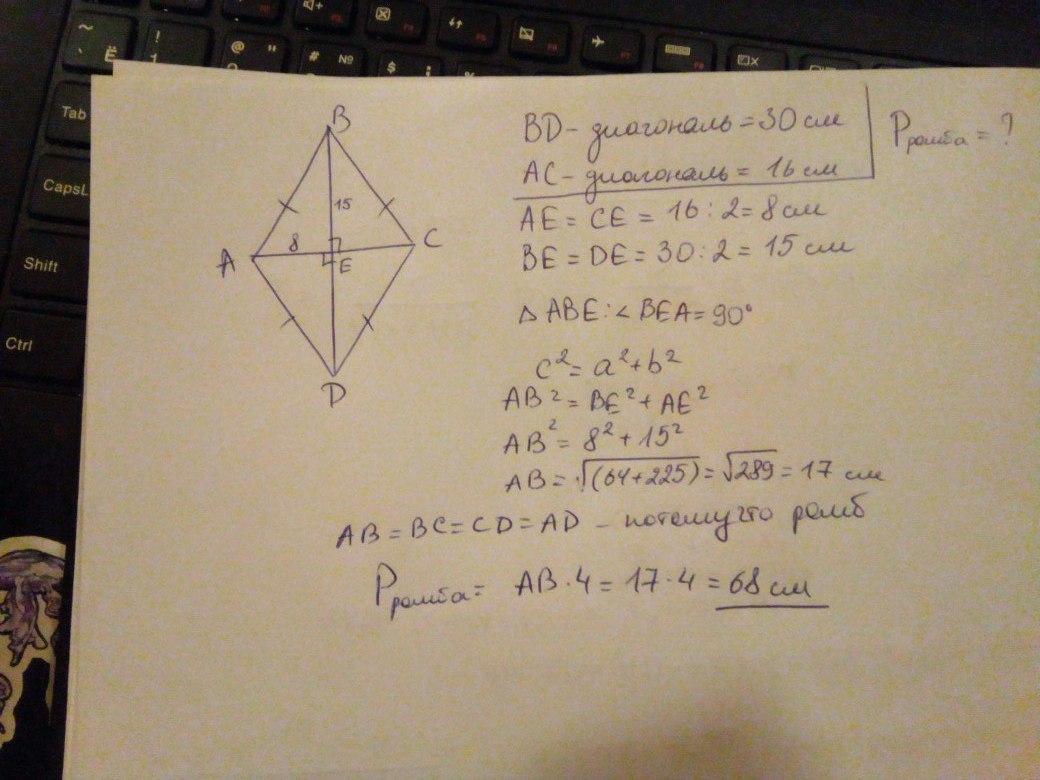 Tab
CapsL
Shift
Ctrl
B
15
8
A
C
E
D
BD - диагональ = 30 см
AC - диагональ = 16 см
Pромба = ?
AE = CE = 16 : 2 = 8 см
BE = DE = 30 : 2 = 15 см
△ ABE : ∠ BEA = 90°
c² = a² + b²
AB² = BE² + AE²
AB² = 8² + 15²
AB = √(64+225) = √289 = 17 см
AB = BC = CD = AD - потомучто ромб
Pромба = AB · 4 = 17 · 4 = 68 см